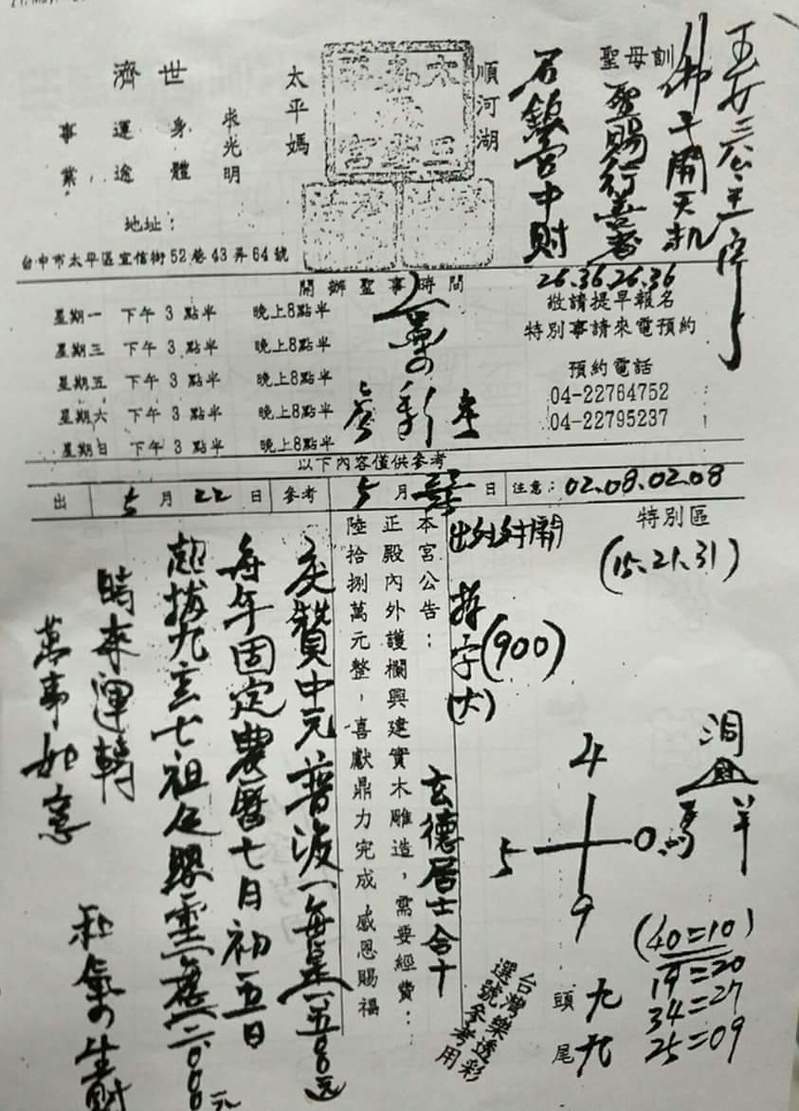 玉女三公主降
佛子開天机
聖母訓
聖賜行善者
石鎮宮中財
26.36.26.36
順河湖
太平媽
濟世
求光明
身體
運途
事業
地址：
台中市太平區宜信街52巷43弄64號
開辦聖事時間
星期一 下午3點半 晚上8點半
星期三 下午3點半 晚上8點半
星期五 下午3點半 晚上8點半
星期六 下午3點半 晚上8點半
星期日 下午3點半 晚上8點半
敬請提早報名
特別事請來電預約
預約電話
04-22764752
04-22795237
以下內容僅供參考
出 5月22日 參考 5月 日 注意：02.08.02.08
特別區
(15.21.31)
本宮公告：
正殿內外護欄興建實木雕造，需要經費：
陸拾捌萬元整，喜獻鼎力完成 感恩賜福
玄德居士合十
慶贊中元普渡 每桌一五００元
每年固定農曆七月初五日
超拔九玄七祖
時來運轉
萬事如意
和氣生財
字(900)
(大)
4
5
0
9
馬 羊
洞
頭 九
尾 九
(40=10)
19=20
34=27
25=09
台灣樂透彩
選號參考用